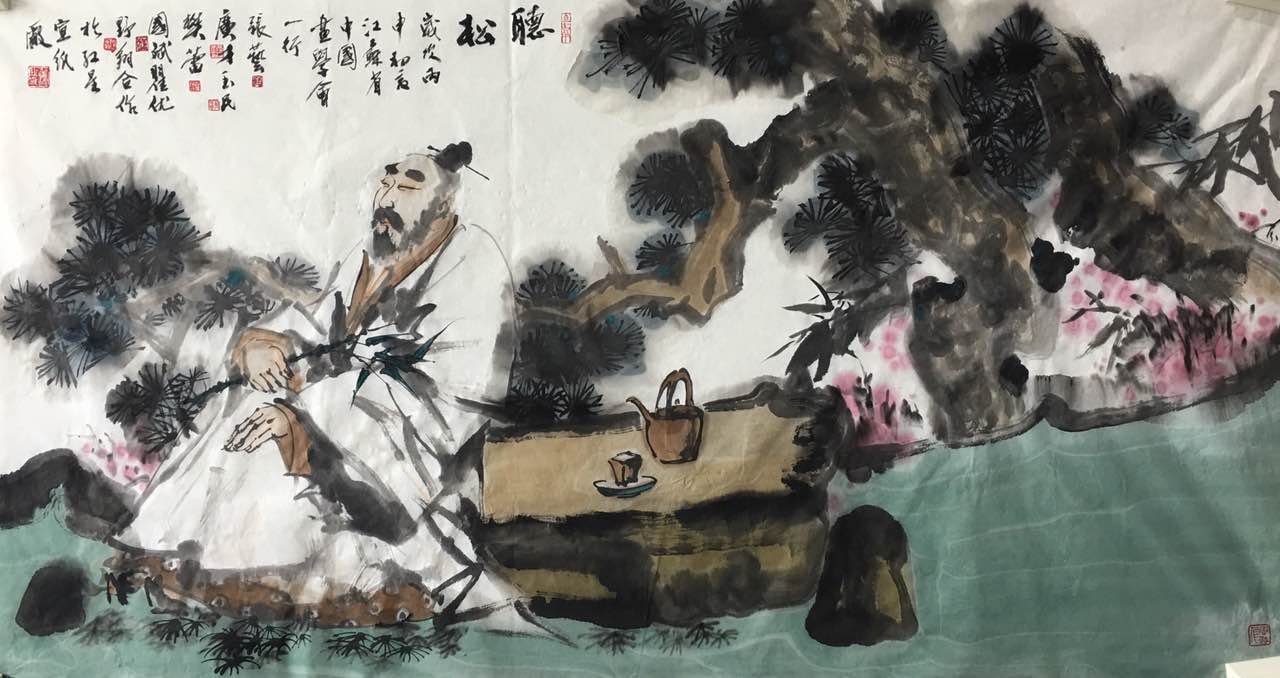 聽松
歲次丙
申初
江蘇省
中國
畫學會
一行
張藝
廣才玉民
樊蕾
國斌瞿优
野翔合作
於紅星
宣紙
廠